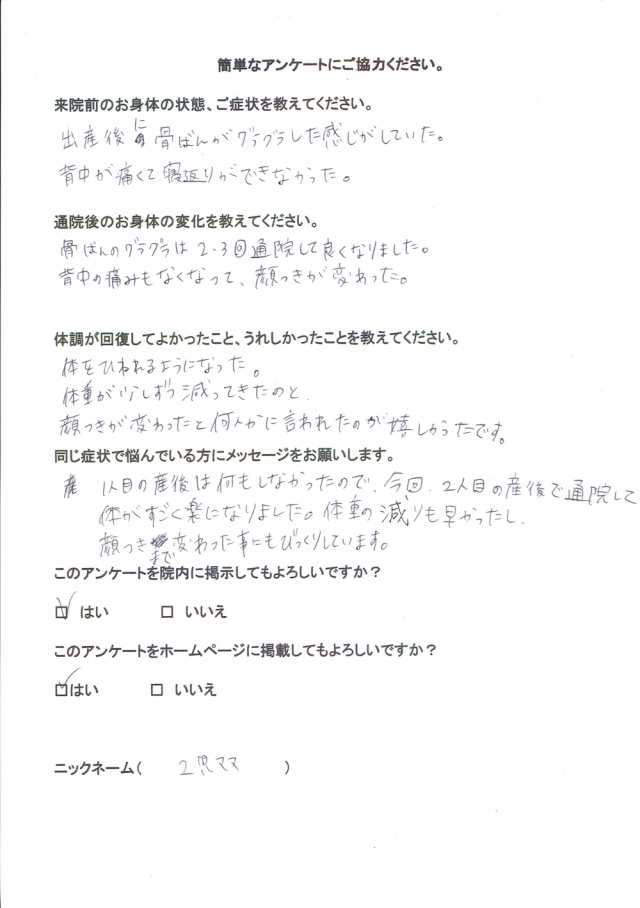 簡単なアンケートにご協力ください。
来院前のお身体の状態、ご症状を教えてください。
出産後に骨ばんがグラグラした感じがしていた。
背中が痛くて寝返りができなかった。
通院後のお身体の変化を教えてください。
骨ばんのグラグラは2・3回通院して良くなりました。
背中の痛みもなくなって、顔つきが変わった。
体調が回復してよかったこと、うれしかったことを教えてください。
体をひねれるようになった。
体重が少しずつ減ってきたのと、
顔つきが変わったと何人かに言われたのが嬉しかったです。
同じ症状で悩んでいる方にメッセージをお願いします。
1人目の産後は何もしなかったので、今回、2人目の産後で通院して
体がすごく楽になりました。体重の減りも早かったし、
顔つきまで変わった事にもびっくりしています。
このアンケートを院内に掲示してもよろしいですか？
☑ はい □ いいえ
このアンケートをホームページに掲載してもよろしいですか？
☑はい □ いいえ
ニックネーム( 2児ママ )